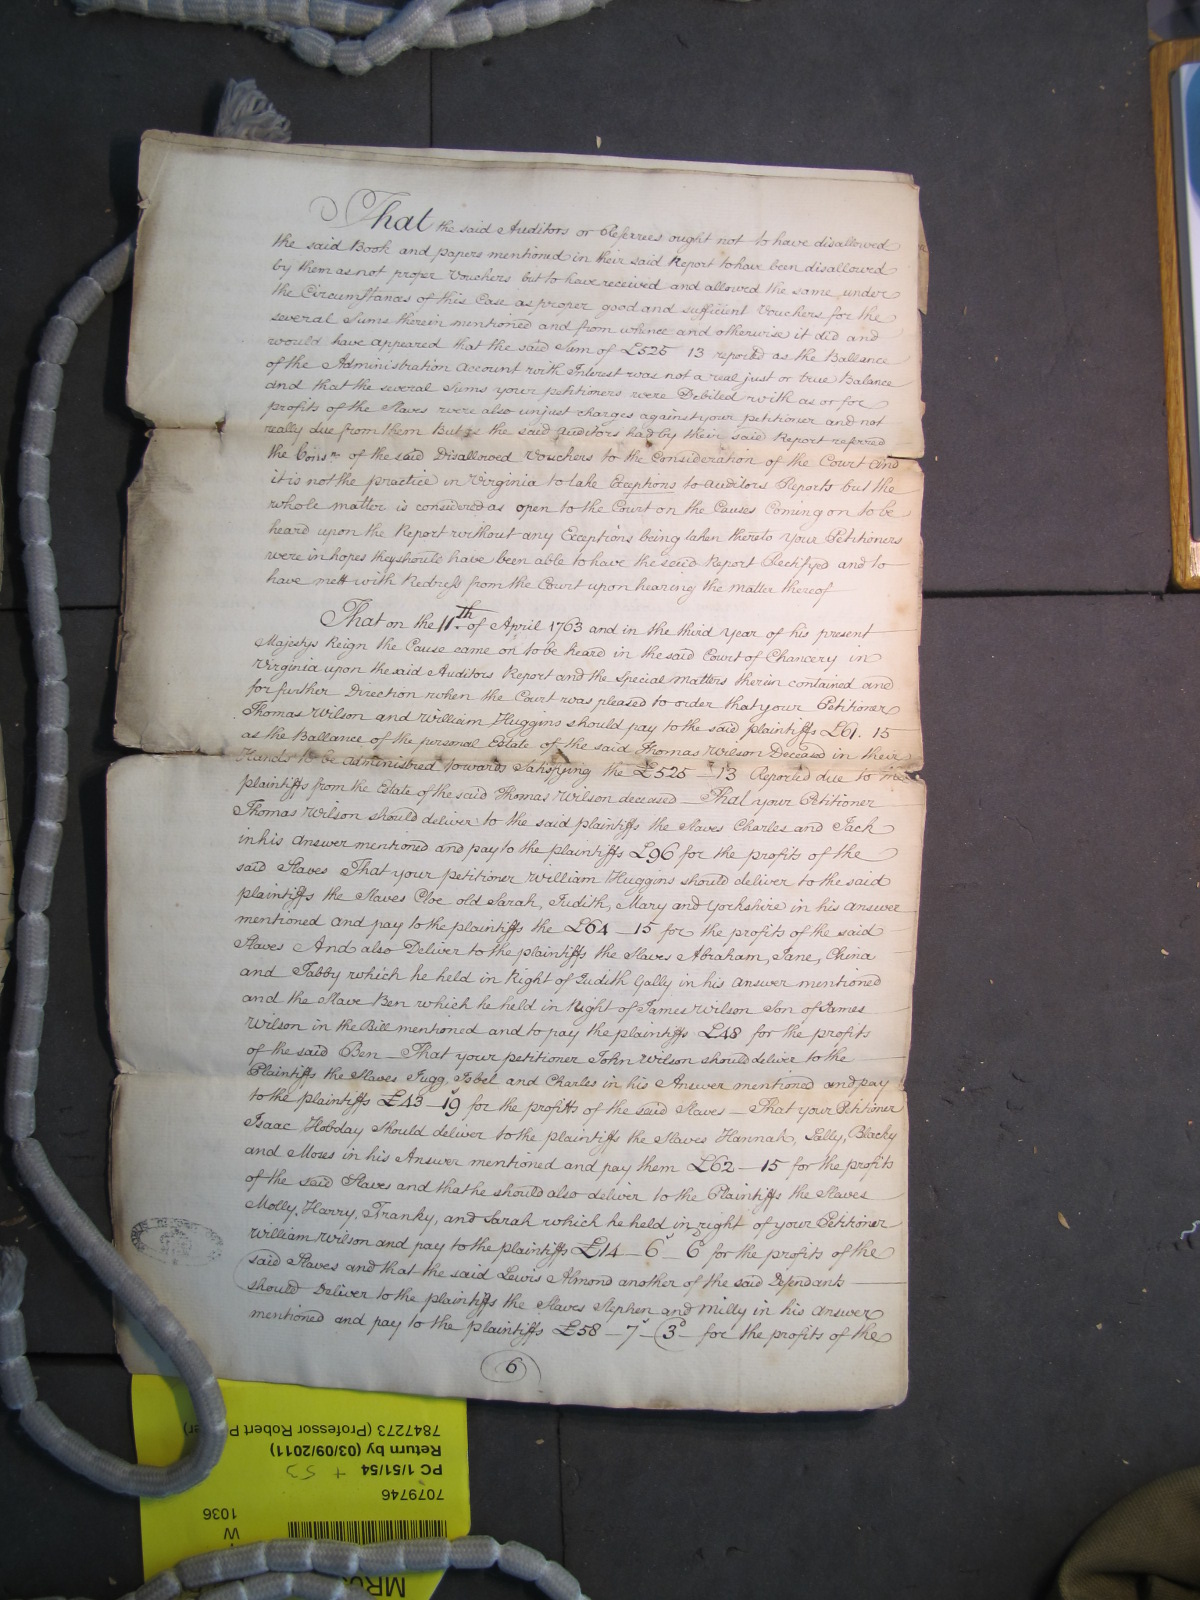 That the said Auditors or Referrees ought not to have disallowed
the said Book and papers mentioned in their said Report to have been disallowed
by them as not proper Vouchers but to have received and allowed the same under
the Circumstances of this Case as proper good and sufficient Vouchers for the
several Sums therein mentioned and from whence and otherwise it did and
would have appeared that the said Sum of £525 13 reported as the Ballance
of the Administration Account with Interest was not a real just or true Balance
and that the several Sums your petitioners were Debited with as or for
profits of the Slaves were also unjust charges against your petitioner and not
really due from them But as the said Auditors had by their said Report referred
the Consn. of the said Disallowed Vouchers to the Consideration of the Court And
it is not the practice in Virginia to take Exceptions to Auditors Reports but the
whole matter is considered as open to the Court on the Causes Coming on to be
heard upon the Report without any Exceptions being taken thereto Your Petitioners
were in hopes they should have been able to have the said Report Rectifyed and to
have mett with Redress from the Court upon hearing the matter thereof
That on the 11th. of April 1763 and in the third Year of his present
Majestys Reign the Cause came on to be heard in the said Court of Chancery in
Virginia upon the said Auditors Report and the Special matters therein contained and
for further Direction when the Court was pleased to order that your Petitioner
Thomas Wilson and William Huggins should pay to the said plaintiffs £61. 15
as the Ballance of the personal Estate of the said Thomas Wilson Deceased in their
Hands to be administred towards Satisfying the £525 – 13 Reported due to the
plaintiffs from the Estate of the said Thomas Wilson deceased – That your Petitioner
Thomas Wilson should deliver to the said plaintiffs the Slaves Charles and Jack
in his answer mentioned and pay to the plaintiffs £96 for the profits of the
said Slaves That your petitioner William Huggins should deliver to the said
plaintiffs the Slaves Cloe old Sarah, Judith, Mary and Yorkshire in his answer
mentioned and pay to the plaintiffs the £64 – 15 for the profits of the said
Slaves And also Deliver to the plaintiffs the Slaves Abraham, Jane, China
and Tabby which he held in Right of Judith Gally in his answer mentioned
and the Slave Ben which he held in Right of James Wilson Son of James
Wilson in the Bill mentioned and to pay the plaintiffs £48 for the profits
of the said Ben – That your petitioner John Wilson should deliver to the
Plaintiffs the Slaves Jugg, Isbel and Charles in his Answer mentioned and pay
to the plaintiffs £43 – 19s for the profitts of the said Slaves – That your Petitioner
Isaac Hobday should deliver to the plaintiffs the Slaves Hannah, Sally, Blacky
and Moses in his Answer mentioned and pay them £62 – 15 for the profits
of the said Slaves and that he should also deliver to the Plaintiffs the Slaves
Molly, Harry, Franky, and Sarah which he held in right of your Petitioner
William Wilson and pay to the plaintiffs £14 – 6s – 6d for the profits of the
said Slaves and that the said Lewis Almond another of the said Defendants
should Deliver to the plaintiffs the Slaves Stephen and Milly in his answer
mentioned and pay to the plaintiffs £58 – 7s – 3d – for the profits of the
6
7847273 (Professor Robert P
Return by (03/09/2011)
PC 1/51/54 + 53
7079746
1036
W